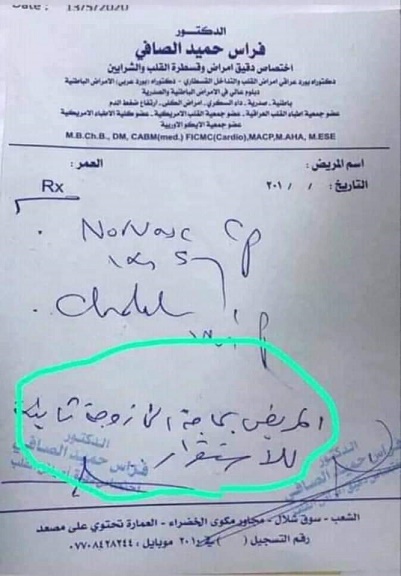 Date : 13/5/2020
الدكتــور
فراس حميد الصافي
اختصاص دقيق امراض وقسطرة القلب والشرايين
دكتوراه بورد عراقي امراض القلب والتداخل القسطاري - دكتوراه (بورد عربي) الامراض الباطنية
دبلوم عالي في الامراض الباطنية والصدرية
باطنية . صدرية . داء السكري . امراض الكلى . أرتفاع ضغط الدم
عضو جمعية اطباء القلب العراقية . عضو جمعية القلب الامريكية . عضو كلية الاطباء الامريكية
عضو جمعية الايكو الاوربية
M.B.Ch.B., DM, CABM(med.) FICMC(Cardio),MACP,M.AHA, M.ESE
اسم المريض : العمر :
التاريخ : / / ٢٠١
Rx
Norvasc
المريض بحاجة الى زوجة ثانية
للاستقرار
الدكتور
فراس حميد الصافي
الدكتور
فراس حميد الصافي
الشعب - سوق شلال - مجاور مكوى الخضراء - العمارة تحتوي على مصعد
رقم التسجيل ( ) موبايل : ٠٧٧٠٨٤٢٨٢٤٤